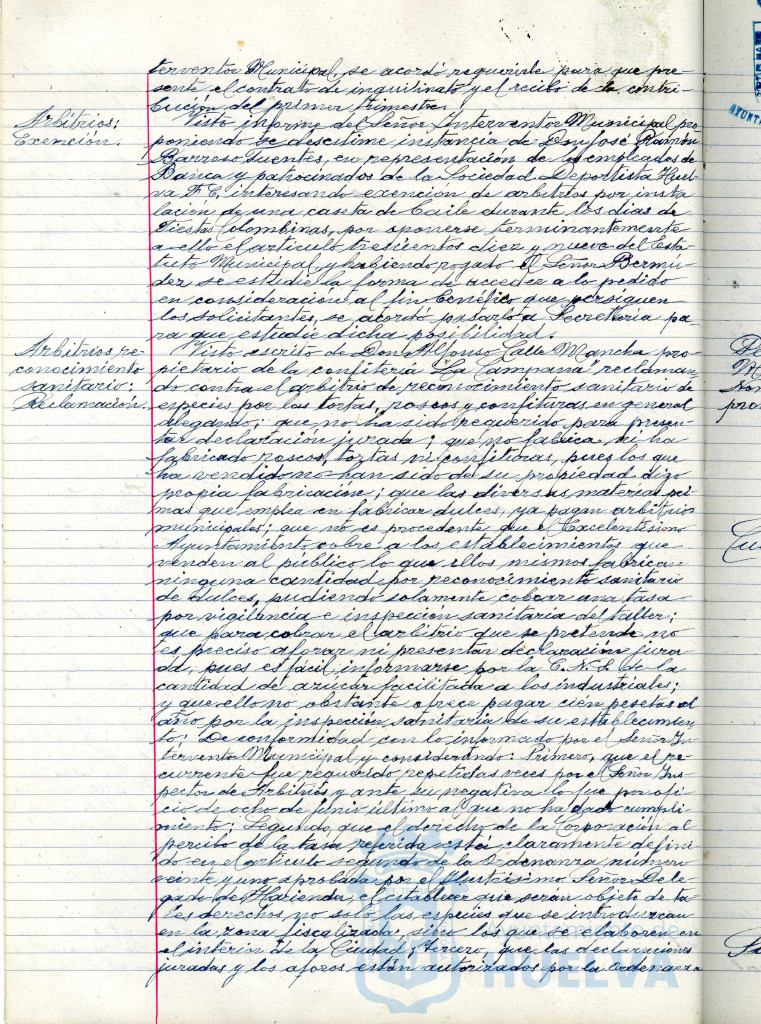 terventor Municipal, se acordó requerirle para que pre-
sente el contrato de inquilinato y el recibo de la contri-
bución del primer trimestre.
Arbitrios:
Exención.
Visto informe del Señor Interventor Municipal pro-
poniendo se desestime instancia de Don José Ramón
Barroso Fuentes, en representación de los empleados de
Banca y patrocinados de la Sociedad Deportista Huel-
va F.C. interesando exención de arbitrios por insta-
lación de una caseta de baile durante los días de
Fiestas Colombinas, por oponerse terminantemente
a ello el artículo trescientos diez y nueve del Esta-
tuto Municipal, y habiendo rogado el Señor Bermú-
dez se estudie la forma de acceder a lo pedido
en consideración al fin benéfico que persiguen
los solicitantes, se acordó pasarlo a Secretaría pa-
ra que estudie dicha posibilidad.
Arbitrios, re-
conocimiento
sanitario:
Reclamación.
Visto escrito de Don Alfonso Calle Mancha pro-
pietario de la confitería "La Campana" reclaman-
do contra el arbitrio de reconocimiento sanitario de
especies por las tortas, roscos y confituras en general
alegando; que no ha sido requerido para presen-
tar declaración jurada; que no fabrica ni ha
fabricado roscos, tortas ni confituras, pues los que
ha vendido no han sido de su propiedad digo
propia fabricación; que las diversas materias pri-
mas que emplea en fabricar dulces, ya pagan arbitrios
municipales; que no es procedente que el Excelentísimo
Ayuntamiento cobre a los establecimientos que
venden al público lo que ellos mismos fabrican
ninguna cantidad por reconocimiento sanitario
de dulces, pudiendo solamente cobrar una tasa
por vigilancia e inspección sanitaria del taller;
que para cobrar el arbitrio que se pretende no
es preciso aforar ni presentar declaración jura-
da, pues es fácil informarse por la C.N.S. de la
cantidad de azúcar facilitada a los industriales;
y que ello no obstante ofrece pagar cien pesetas al
año por la inspección sanitaria de su establecimien-
to. De conformidad con lo informado por el Señor In-
terventor Municipal y considerando: Primero, que el re-
currente fue requerido repetidas veces por el Señor Ins-
pector de Arbitrios y ante su negativa lo fue por ofi-
cio de ocho de junio último al que no ha dado cumpli-
miento; Segundo, que el derecho de la Corporación al
percibo de la tasa referida está claramente defini-
do en el artículo segundo de la Ordenanza número
veinte y uno aprobada por el Ilustrísimo Señor Dele-
gado de Hacienda, al establecer que serán objeto de ta-
les derechos no solo las especies que se introduzcan
en la zona fiscalizada, sino los que se elaboren en
el interior de la Ciudad; Tercero, que las declaraciones
juradas y los aforos están autorizados por la Ordenanza
HUELVA